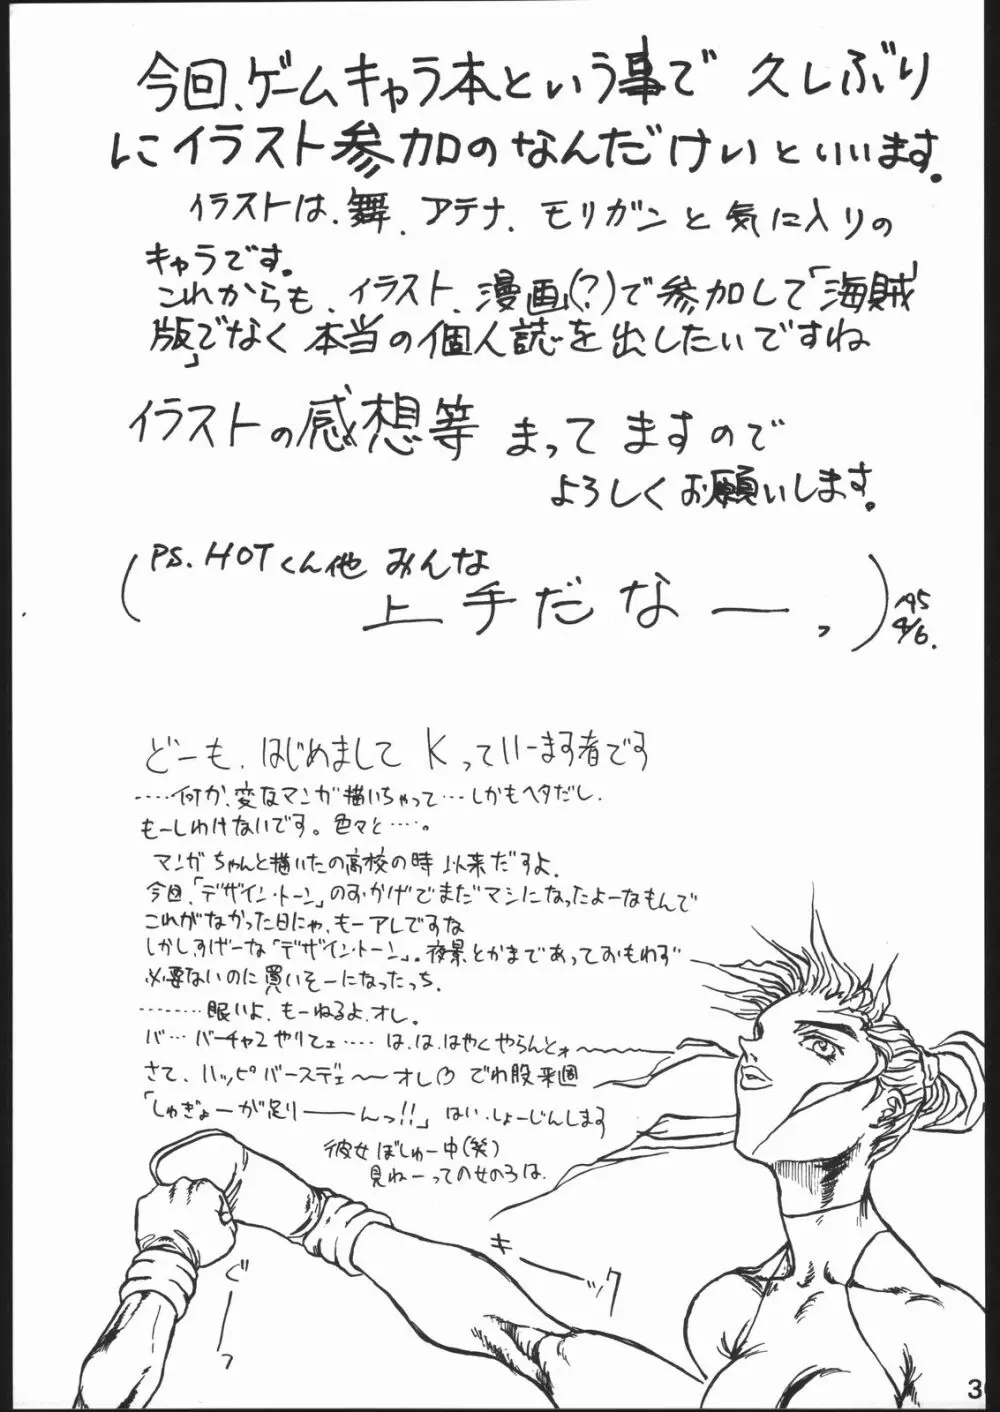 今回、ゲームキャラ本という事で 久しぶり
にイラスト参加のなんだけいといいます。
イラストは、舞、アテナ、モリガンと気に入りの
キャラです。
これからも、イラスト、漫画(?)で参加して「海賊
版」でなく本当の個人誌を出したいですね
イラストの感想等 まってますので
よろしくお願いします。
(PS. HOTくん他 みんな
上手だなーっ)
'95
4/6.
どーも、はじめまして Kっていーます者です
……何か、変なマンガ描いちゃって…しかもヘタだし.
もーしわけないです。色々と……。
マンガちゃんと描いたの高校の時以来だすよ.
今回、「デザイン・トーン」のおかげでまだマシになったよーなもんで
これがなかった日にゃ、もーアレですな
しかしすげーな「デザイン・トーン」。夜景とかまであっておもわず
必要ないのに買いそーになったっち.
………眠いよ、もーねるよ、オレ。
バ… バーチャ2やりてェ…. は、は、はやくやらんとォ〜
さて、ハッピバースデェ〜オレ♡ でわ股来週
「しゅぎょーが足りーーんっ!!」はい、しょーじんします
彼女ぼしゅー中(笑)
見ねーっての女のろは.
ぐーっ
キーック
3